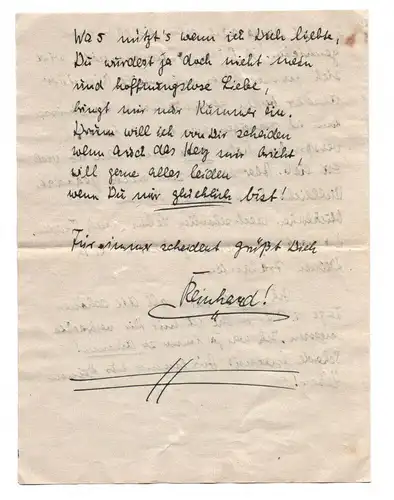 Was nützt's wenn ich Dich liebte,
Du würdest ja doch nicht mein
und hoffnungslose Liebe,
bringt mir nur Kummer ein.
Drum will ich von Dir scheiden
wenn auch das Herz mir bricht,
will gerne alles leiden
wenn Du nur glücklich bist!
Für immer scheidend grüßt Dich
Reinhard!